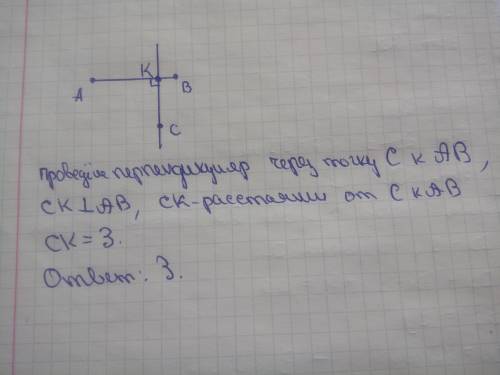 K
A
B
C
Проведём перпендикуляр через точку C к AB,
CK⊥AB, CK-расстояние от C к AB
CK = 3.
Ответ: 3.